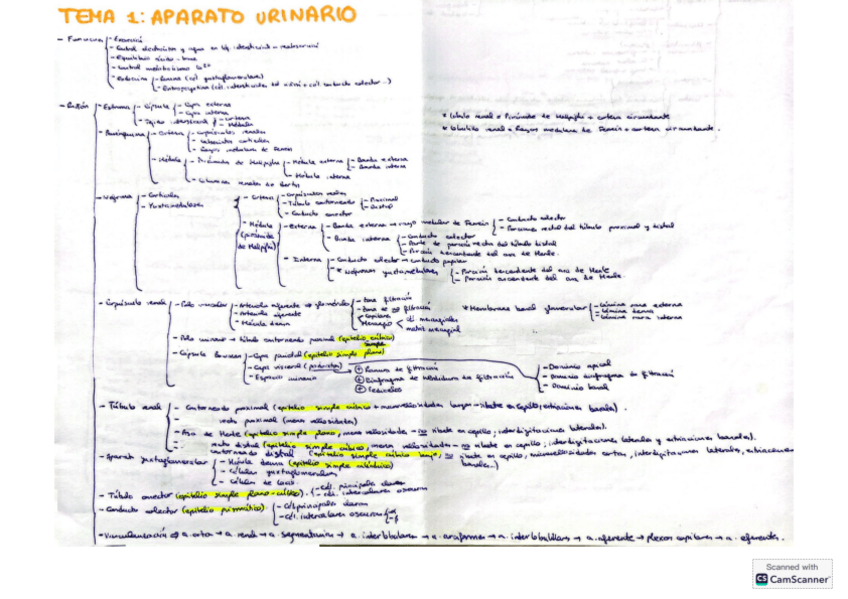 TEMA 1: APARATO URINARIO
- Funciones - Excreción
- Control electrolitos y agua en
- Equilibrio ácido-base
- Control
- Endocrina - Renina (cél. yuxtaglomerulares)
- Eritropoyetina (cél. intersticiales
- Riñón - Externa - Cápsula - Capa externa
- Capa interna
- Tejido intersticial - Corteza
- Médula
* Lóbulo renal = Pirámide de Malpighi + corteza circundante
* Lobulillo renal = Rayos medulares de Ferrein + corteza circundante.
- Parénquima - Corteza - Corpúsculos renales
- Laberintos corticales
- Rayos medulares de Ferrein
- Médula - Pirámides de Malpighi - Médula externa - Banda externa
- Banda interna
- Médula interna
- Columnas renales de Bertin
- Nefrona - Corticales
- Yuxtamedulares
- Corteza - Corpúsculos renales
- Túbulo contorneado - Proximal
- Distal
- Conducto conector
- Médula (pirámides de Malpighi) - Externa - Banda externa → rayo medular de Ferrein - Conducto colector
- Porciones recta del túbulo proximal y distal
- Banda interna - Conducto colector
- Parte de porción recta del túbulo distal
- Porción descendente del asa de Henle.
- Interna - Conducto colector → conducto papilar
- * Nefronas yuxtamedulares - Porción descendente del asa de Henle
- Porción ascendente del asa de Henle.
- Corpúsculo renal - Polo vascular - Arteriola aferente → glomérulo - zona filtración
- Arteriola eferente - zona de no filtración
- Mácula densa - Capilares
- Mesangio < cél. mesangiales
matriz mesangial
* Membrana basal glomerular - Lámina rara externa
- Lámina densa
- Lámina rara interna
- Polo urinario → túbulo contorneado proximal (epitelio simple cúbico)
- Cápsula Bowman - Capa parietal (epitelio simple plano)
- Capa visceral (podocitos) → + Ranuras de filtración
- Espacio urinario + Diafragma de hendidura de filtración
+ Pedicelos
- Dominio apical
- Dominio diafragma de filtración
- Dominio basal
- Túbulo renal - Contorneado proximal (epitelio simple cúbico + microvellosidades largas → ribete en cepillo, estriaciones basales).
recto proximal (menos vellosidades)
- Asa de Henle (epitelio simple plano, menos vellosidades → no ribete en cepillo, interdigitaciones laterales).
- recto distal (epitelio simple cúbico, menos vellosidades → no ribete en cepillo, interdigitaciones laterales y estriaciones basales).
contorneado distal (epitelio simple cúbico bajo, no ribete en cepillo, microvellosidades cortas, interdigitaciones laterales, estriaciones basales..)
- Aparato yuxtaglomerular - Mácula densa (epitelio simple cilíndrico)
- Células yuxtaglomerulares
- Células de Lacis.
- Túbulo conector (epitelio simple plano-cúbico). - cél. principales claras
- cél. intercalares oscuras
- Conducto colector (epitelio prismático). - Cél. principales claras
- Cél. intercalares oscuras
- Vascularización ⇒ a. aorta → a. renal → a. segmentarias → a. interlobulares → a. arciformes → a. interlobulillares → a. aferente → plexos capilares → a. eferente.
Scanned with
CS CamScanner